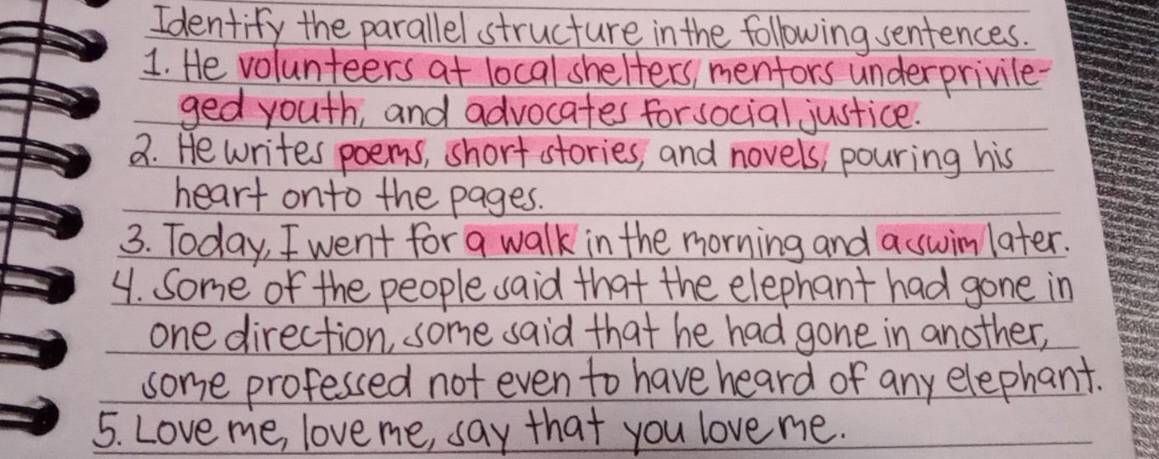 Identify the parallel structure in the following sentences.
1. He volunteers at local shelters, mentors underprivile-
ged youth, and advocates for social justice.
2. He writes poems, short stories, and novels, pouring his
heart onto the pages.
3. Today, I went for a walk in the morning and a swim later.
4. Some of the people said that the elephant had gone in
one direction, some said that he had gone in another,
some professed not even to have heard of any elephant.
5. Love me, love me, say that you love me.